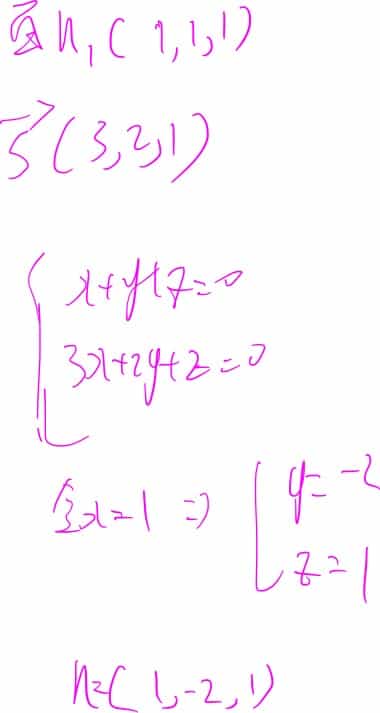 n₁(1,1,1)
s⃗(3,2,1)
{ x+y+z=0
3x+2y+z=0
令x=1 ⇒ { y=-2
z=1
n=(1,-2,1)